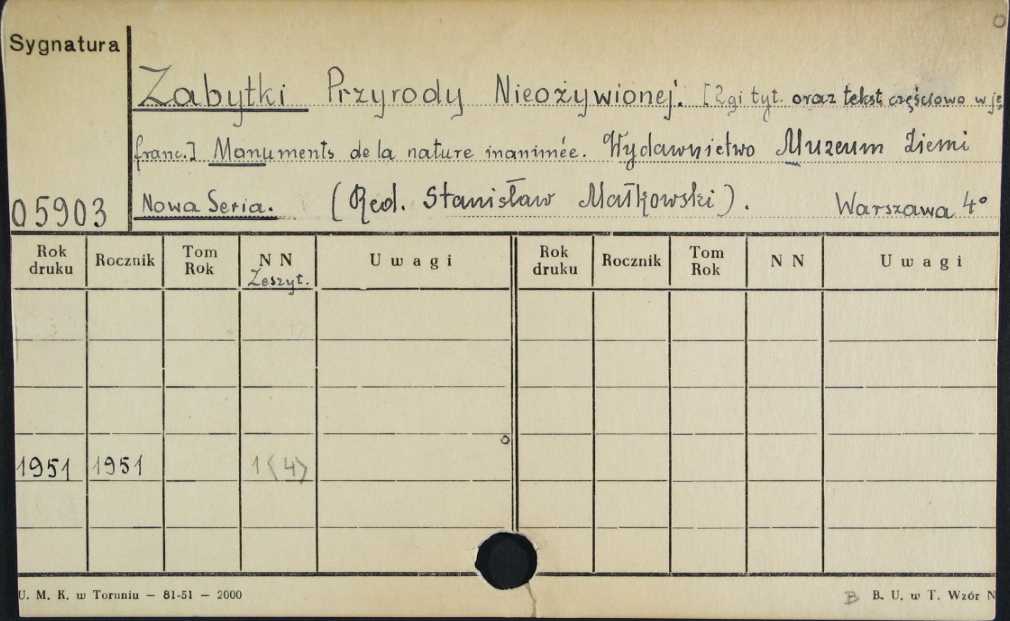 Sygnatura
Zabytki Przyrody Nieożywionej. [2gi tyt. oraz tekst częściowo w ję
franc.] Monuments de la nature inanimée. Wydawnictwo Muzeum Ziemi
05903 Nowa Seria. (Red. Stanisław Małkowski). Warszawa 4°
Rok druku Rocznik Tom Rok N N Zeszyt. Uwagi Rok druku Rocznik Tom Rok N N Uwagi
1951 1951 1⟨4⟩
U. M. K. w Toruniu — 81-51 — 2000 B B. U. w T. Wzór N